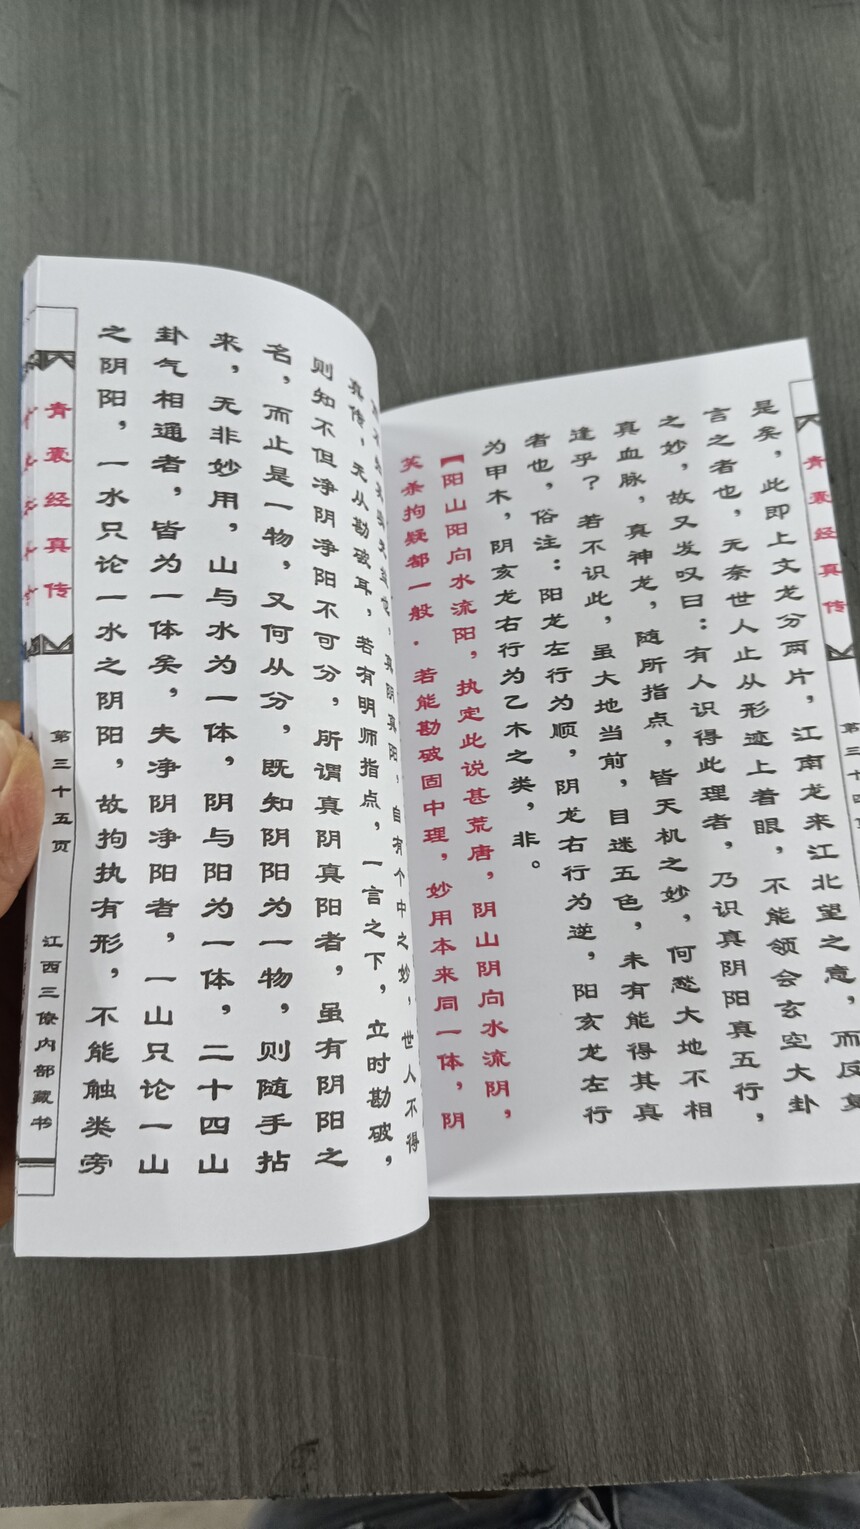 青囊经真传
是矣，此即上文龙分两片，江南龙来江北望之意，而反复
言之者也，无奈世人止从形迹上着眼，不能领会玄空大卦
之妙，故又发叹曰：有人识得此理者，乃识真阴阳真五行，
真血脉，真神龙，随所指点，皆天机之妙，何愁大地不相
逢乎？若不识此，虽大地当前，目迷五色，未有能得其真
者也，俗注：阳龙左行为顺，阴龙右行为逆，阳亥龙左行
为甲木，阴亥龙右行为乙木之类，非。
【阳山阳向水流阳，执定此说甚荒唐，阴山阴向水流阴，
笑杀拘疑都一般．若能勘破固中理，妙用本来同一体，阴
真阴真阳，自有个中之妙，世人不得
真传，无从勘破耳，若有明师指点，一言之下，立时勘破，
则知不但净阴净阳不可分，所谓真阴真阳者，虽有阴阳之
名，而止是一物，又何从分，既知阴阳为一物，则随手拈
来，无非妙用，山与水为一体，阴与阳为一体，二十四山
卦气相通者，皆为一体矣，夫净阴净阳者，一山只论一山
之阴阳，一水只论一水之阴阳，故拘执有形，不能触类旁
青囊经真传
第三十五页
江西三僚内部藏书